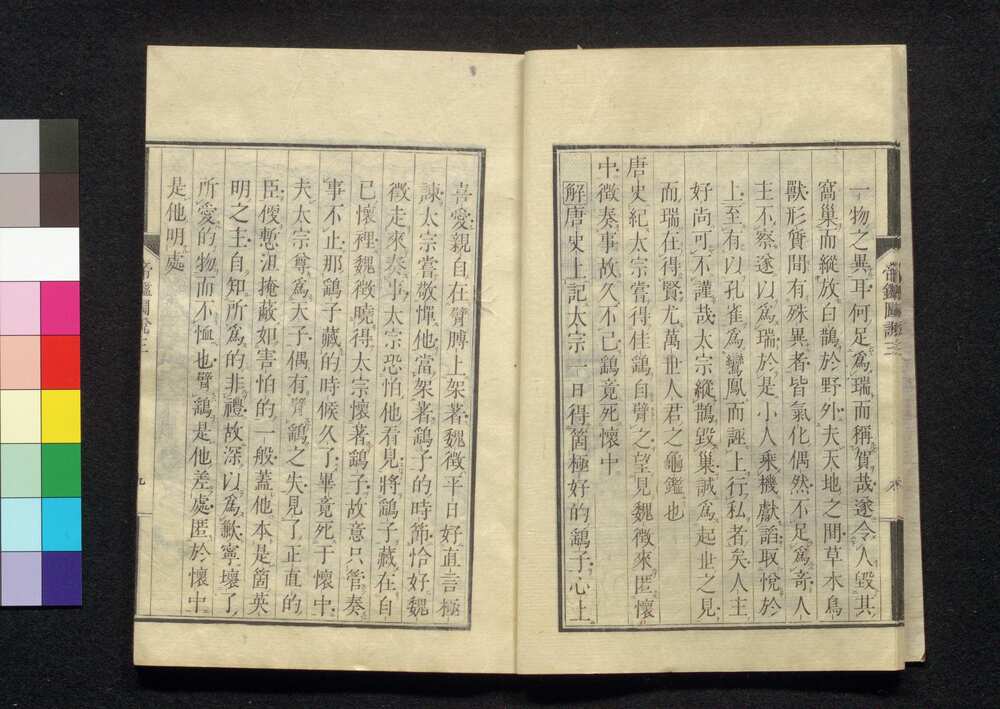 一物之異耳何足為瑞而稱賀哉遂令人毀其
窩巢而縱放白鵲於野外夫天地之間草木鳥
獸形質間有殊異者皆氣化偶然不足為奇人
主不察遂以為瑞於是小人乘機獻諂取悅於
上至有以孔雀為鸞鳳而誣上行私者矣人主
好尚可不謹哉太宗縱鵲毀巢誠為超世之見
而瑞在得賢尤萬世人君之龜鑑也
唐史紀太宗嘗得佳鷂自臂之望見魏徵來匿懷
中徵奏事故久不已鷂竟死懷中
解唐史上記太宗一日得箇極好的鷂子心上
帝鑑圖說三
喜愛親自在臂膊上架著魏徵平日好直言極
諫太宗嘗敬憚他當架著鷂子的時節恰好魏
徵走來奏事太宗恐怕他看見將鷂子藏在自
己懷裡魏徵曉得太宗懷著鷂子故意只管奏
事不止那鷂子藏的時候久了畢竟死于懷中
夫太宗尊為天子偶有臂鷂之失見了正直的
臣便慙沮掩蔽如害怕的一般蓋他本是箇英
明之主自知所為的非禮故深以為歉寧壞了
所愛的物而不恤也臂鷂是他差處匿於懷中
是他明處
帝鑑圖說三
九